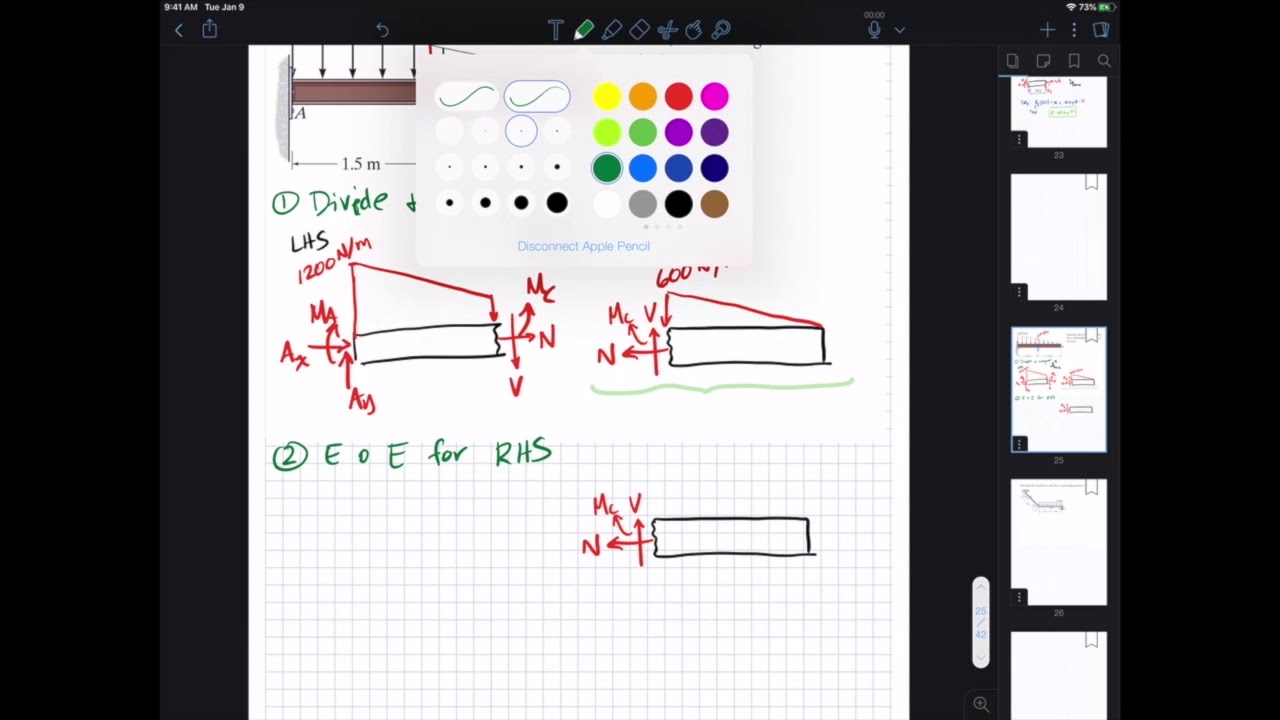 9:41 AM Tue Jan 9
73%
00:00
A
1.5 m
① Divide
LHS
1200 N/m
MA
Ax
Ay
Mc
N
V
600 N/
Mc V
N
② E o E for RHS
Mc V
N
Disconnect Apple Pencil
23
24
25
26
25
/
42